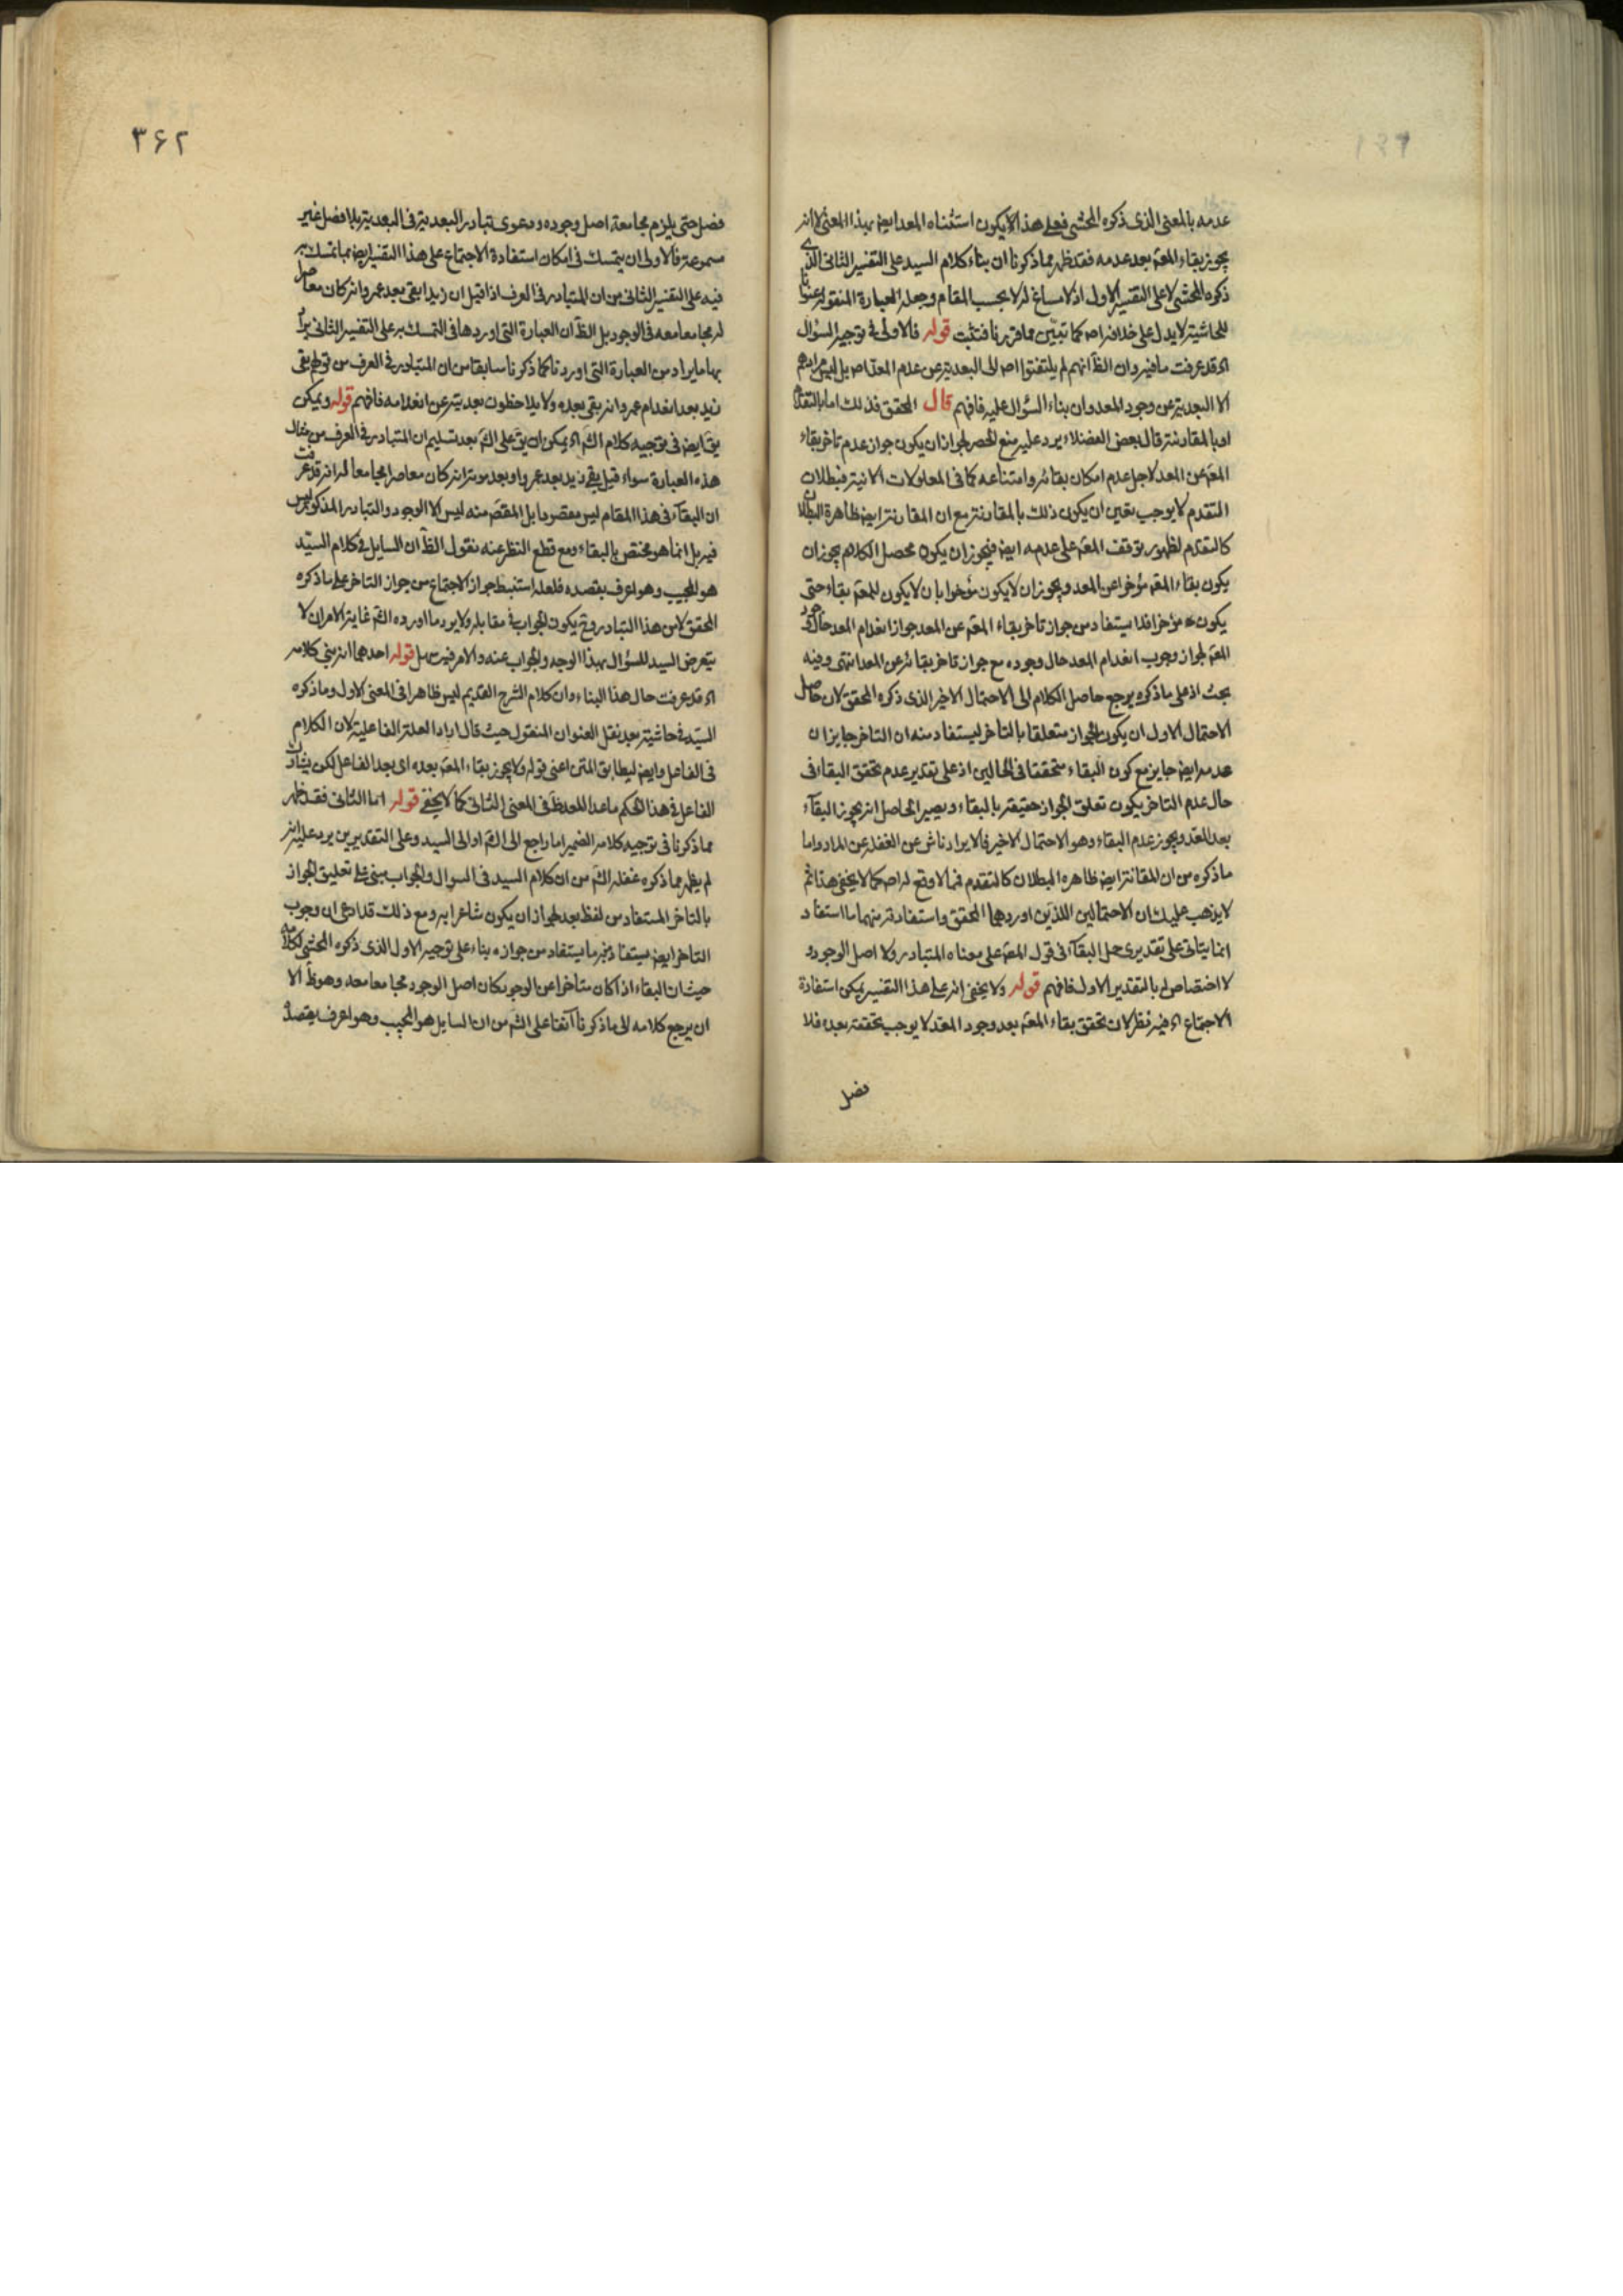 عدمه بالمعنى الذى ذكره المحشى فعلى هذا لا يكون استثناه المعد ايض بهذا المعنى لانه
يجوز بقاء المعه بعد عدمه فقد ظهر مما ذكرنا ان بناء كلام السيد على التفسير الثانى الذى
ذكره المحشى لا على التفسير الاول اذ لا مساغ له لا بحسب المقام وجعله العبارة المنقوله عنوانا
للحاشيته لا يدل على خلافه اص كما تبيّن مما قررنا فتثبت قوله فالاولى فى توجيه السؤال
اه قد عرفت ما فيه وان الظ انهم لم يلتفتوا اص الى البعديه عن عدم المعد اص بل ليس مرادهم
الا البعديه عن وجود المعد وان بناء السؤال عليه فافهم قال المحقق فذلك اما بالتقدم
او بالمقارنه قال بعض الفضلاء يرد عليه منع الحصر لجواز ان يكون جواز عدم تاخر بقاء
المعه عن المعد لاجل عدم امكان بقائه وامتناعه كما فى المعلولات الانيه فبطلان
المتقدم لا يوجب تعين ان يكون ذلك بالمقارنه مع ان المقارنه ايض ظاهرة البطلان
كالتقدم لظهور توقف المعه على عدمه ايض فيجوز ان يكون محصل الكلام يجوز ان
يكون بقاء المعه مؤخرا عن المعد ويجوز ان لا يكون مؤخرا بان لا يكون للمعه بقاء حتى
يكون مؤخرا فلا يستفاد من جواز تاخر بقاء المعه عن المعد جواز انعدام المعد حال وجود
المعه لجواز وجوب انعدام المعد حال وجوده مع جواز تاخر بقائه عن المعد انتهى وفيه
بحث اذ على ما ذكره يرجع حاصل الكلام الى الاحتمال الاخير الذى ذكره المحقق لان حاصل
الاحتمال الاول ان يكون الجواز متعلقا بالتاخر ليستفاد منه ان التاخر جايز ان
عدمه ايض جايز مع كون البقاء متحققا فى الحالين اذ على تقدير عدم تحقق البقاء فى
حال عدم التاخر يكون تعلق الجواز حقيقه بالبقاء ويصير الحاصل انه يجوز البقاء
بعد المعد ويجوز عدم البقاء وهو الاحتمال الاخير فالايراد ناش عن الغفله عن المراد واما
ما ذكره من ان المقارنه ايض ظاهره البطلان كالتقدم فمما لا وقع له اص كما لا يخفى هذا ثم
لا يذهب عليك ان الاحتمالين اللذين اوردهما المحقق واستفادته منهما ما استفاد
انما يتاتى على تقديرى حمل البقاء فى قول المصه على معناه المتبادر ولا اصل الوجود و
لا اختصاص له بالتقدير الاول فافهم قوله ولا يخفى انه على هذا التفسير يمكن استفادة
الاجتماع اه فيه نظر لان تحقق بقاء المعه بعد وجود المعد لا يوجب تحققه بعده فلا
فصل
٣۶٢
فصل حتى يلزم مجامعة اصل وجوده ودعوى تبادر البعديه فى البعديه بلا فصل غير
مسموعة فالاولى ان يتمسك فى امكان استفادة الاجتماع على هذا التفسير ايض بما تمسك به
فيه على التفسير الثانى من ان المتبادر فى العرف اذا قيل ان زيدا بقى بعد عمرو انه كان معاصرا
له مجامعا معه فى الوجود بل الظ ان العبارة التى اوردها فى التمسك به على التفسير الثانى يراد
بها ما يراد من العبارة التى اوردنا كما ذكرنا سابقا من ان المتبادر فى العرف من قولهم بقى
زيد بعد انعدام عمرو انه بقى بعده ولا يلاحظون بعديته عن انعدامه فافهم قوله ويمكن
يق ايض فى توجيه كلام الش اه يمكن ان يق على الش بعد تسليم ان المتبادر فى العرف من مثال
هذه العبارة سواء قيل بقى زيد بعد عمرو او بعد موته انه كان معاصرا مجامعا له انه قد عرفت
ان البقاء فى هذا المقام ليس مقصودا بل المقصد منه ليس الا الوجود والتبادر المذكور ليس
فيه بل انما هو مختص بالبقاء ومع قطع النظر عنه نقول الظ ان السايل فى كلام السيّد
هو المجيب وهو اعرف بقصده فلعله استنبط جواز الاجتماع من جواز التاخر على ما ذكره
المحقق لا من هذا التبادر وح يكون الجواب فى مقابله ولا يرد ما اورده الش غاية الامر ان لا
يتعرض السيد للسؤال بهذا الوجه والجواب عنه والامر فيه سهل قوله احدهما انه بنى كلامه
اه قد عرفت حال هذا البناء وان كلام الشرح القديم ليس ظاهرا فى المعنى الاول وما ذكره
السيد فى حاشيته بعد نقل العنوان المنقول حيث قال اراد العلة الفاعلية لان الكلام
فى الفاعل وايض ليطابق المتن اعنى قوله ولا يجوز بقاء المعه بعده اى بعد الفاعل لكن يشارك
الفاعل فى هذا الحكم ما عدا المعد ظ فى المعنى الثانى كما لا يخفى قوله اما الثانى فقد ظهر
مما ذكرنا فى توجيه كلامه الضمير اما راجع الى الش او الى السيد وعلى التقديرين يرد عليه انه
لم يظهر مما ذكره غفله الش من ان كلام السيد فى السوال والجواب مبنى على تعليق الجواز
بالتاخر المستفاد من لفظ بعد لجواز ان يكون شاعرا به ومع ذلك قد ادعى ان وجوب
التاخر ايض يستفاد منه ما يستفاد من جوازه بناء على توجيه الاول الذى ذكره المحشى لكلامه
حيث ان البقاء اذا كان متاخرا عن الوجود كان اصل الوجود مجامعا معه وهو ظ الا
ان يرجع كلامه الى ما ذكرنا آنفا على الش من ان السايل هو المجيب وهو اعرف بقصده